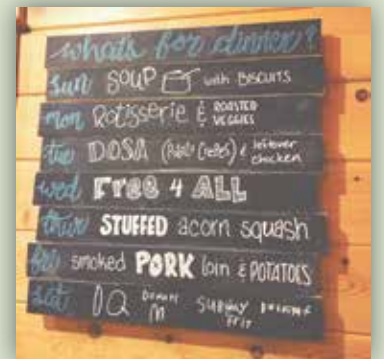 whats for dinner?
sun SOUP with BISCUITS
mon Rotisserie & ROASTED VEGGIES
tue DOSA (Potato Crepes) & leftover chicken
wed FREE 4 ALL
thur STUFFED acorn squash
fri smoked PORK loin & POTATOES
sat DQ SUBWAY